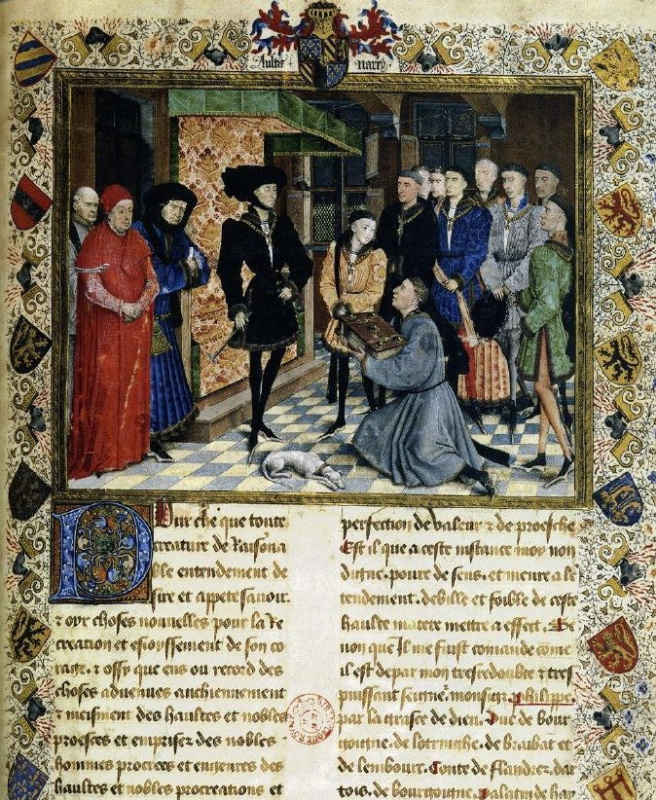 Aultre narey
Pur che que toute
creature de Raisona
ble entendement de
sire et appete sauoir
⁊ oyr choses nouuelles pour la Re
creation et esioyssement de son co
rage. ⁊ ossy que ens ou record des
choses aduenues anchiennement
⁊ meisment des haultes et nobles
proesces et emprises des nobles
hommes procrees et engenres des
haultes et nobles procreations et
perfection de valeur ⁊ de proesche
Est il que a ceste instance moy non
digne. poure de sens. et menre a le
tendement. debille et foible de ceste
haulte matere mettre a effect. Se
non que Il me fust comande come
il est depar mon tresredoubte ⁊ tres
puissant seigneur. monsigr. Phelippe
par la grasce de dieu. Duc de bour
goingne. de lotringhe. de brabant et
de lembourc. Conte de flandres. dar
tois. de bourgoingne. Palatin de hay